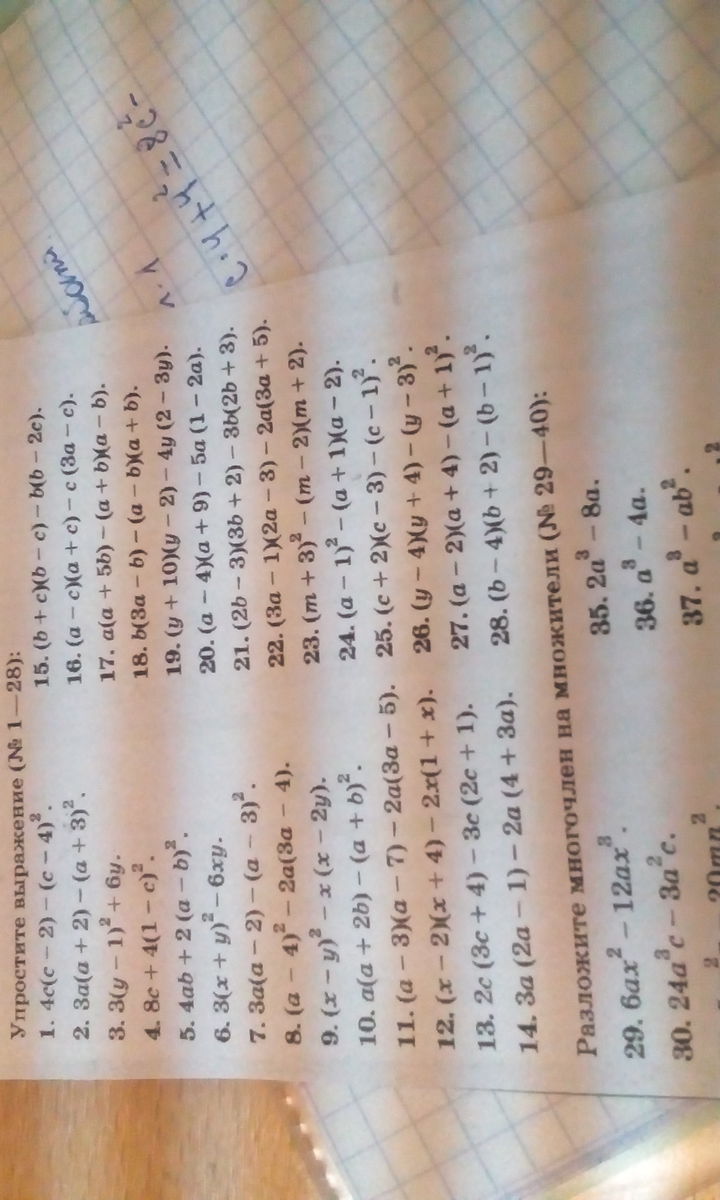 Упростите выражение (№ 1—28):
1. 4c(c – 2) – (c – 4)².
2. 3a(a + 2) – (a + 3)².
3. 3(y – 1)² + 6y.
4. 8c + 4(1 – c)².
5. 4ab + 2 (a – b)².
6. 3(x + y)² – 6xy.
7. 3a(a – 2) – (a – 3)².
8. (a – 4)² – 2a(3a – 4).
9. (x – y)² – x (x – 2y).
10. a(a + 2b) – (a + b)².
11. (a – 3)(a – 7) – 2a(3a – 5).
12. (x – 2)(x + 4) – 2x(1 + x).
13. 2c (3c + 4) – 3c (2c + 1).
14. 3a (2a – 1) – 2a (4 + 3a).
15. (b + c)(b – c) – b(b – 2c).
16. (a – c)(a + c) – c (3a – c).
17. a(a + 5b) – (a + b)(a – b).
18. b(3a – b) – (a – b)(a + b).
19. (y + 10)(y – 2) – 4y (2 – 3y).
20. (a – 4)(a + 9) – 5a (1 – 2a).
21. (2b – 3)(3b + 2) – 3b(2b + 3).
22. (3a – 1)(2a – 3) – 2a(3a + 5).
23. (m + 3)² – (m – 2)(m + 2).
24. (a – 1)² – (a + 1)(a – 2).
25. (c + 2)(c – 3) – (c – 1)².
26. (y – 4)(y + 4) – (y – 3)².
27. (a – 2)(a + 4) – (a + 1)².
28. (b – 4)(b + 2) – (b – 1)².
Разложите многочлен на множители (№ 29—40):
29. 6ax² – 12ax³.
30. 24a³c – 3a²c.
35. 2a³ – 8a.
36. a³ – 4a.
37. a³ – ab².
c·4 + 4² = 8c² -